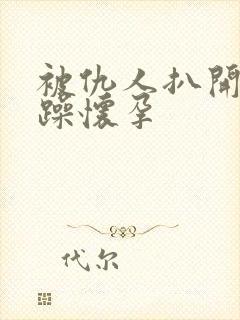 被仇人扒開
躁懷孕
代尔